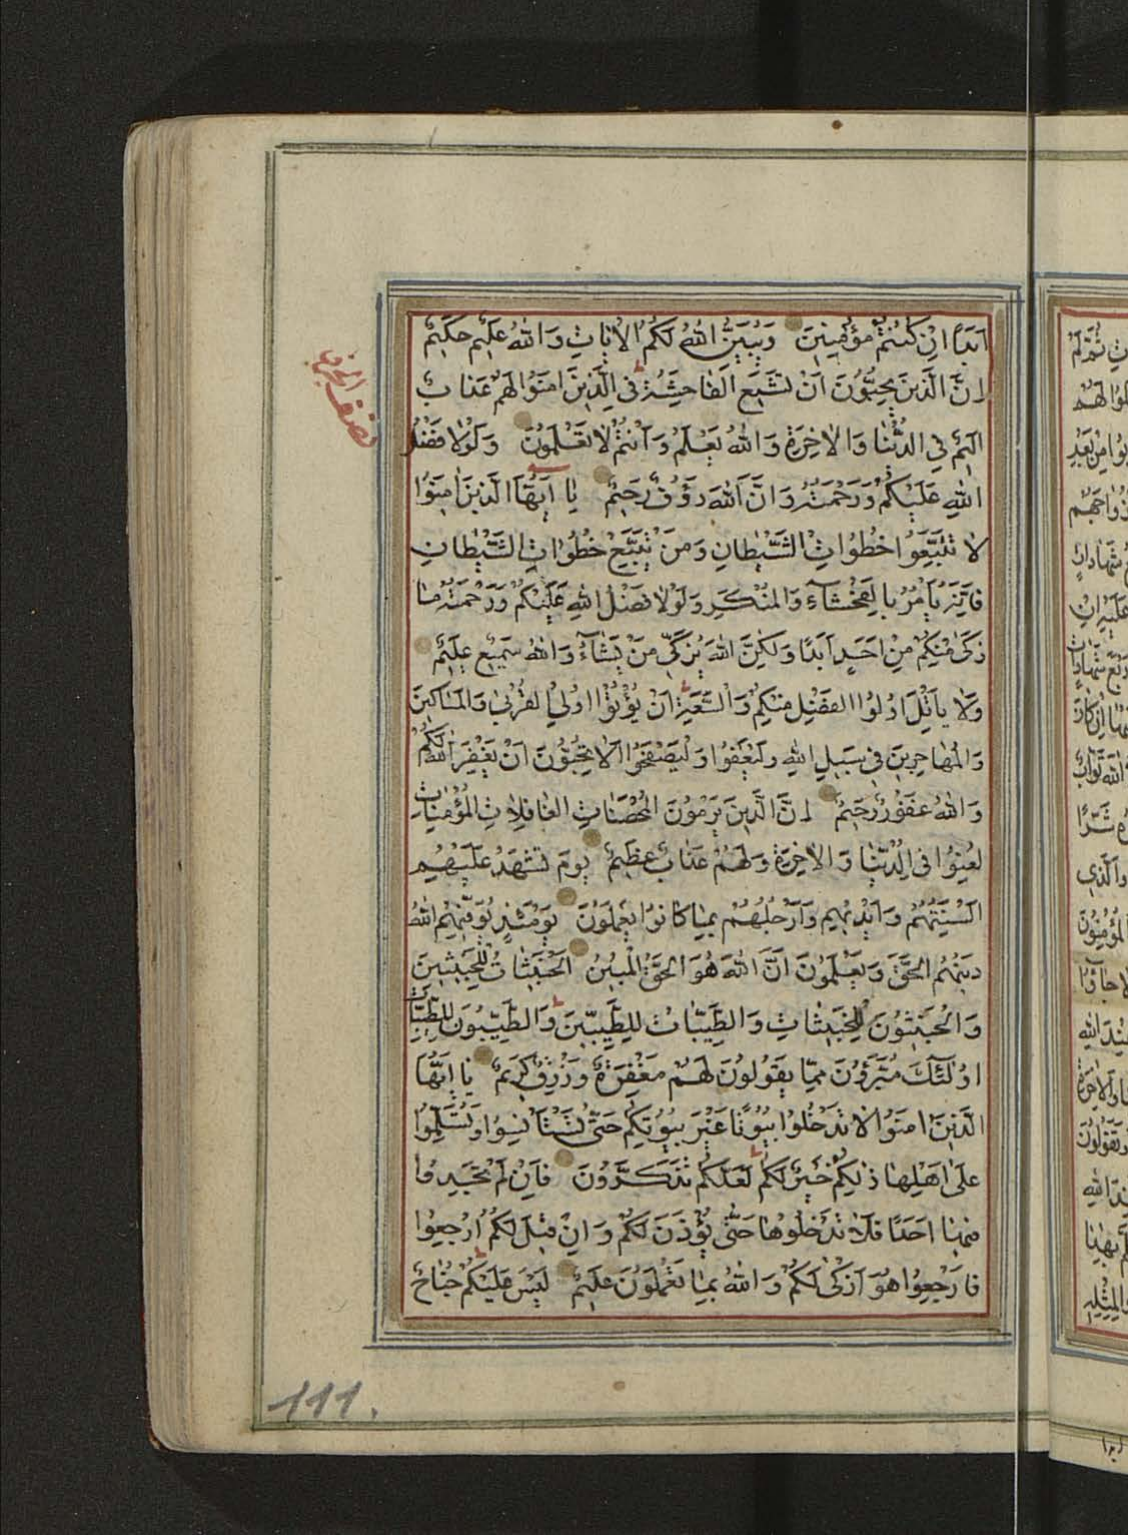 اَبَدًا اِنْ كُنْتُمْ مُؤْمِنِينَ وَيُبَيِّنُ اللهُ لَكُمُ الْاٰيَاتِ وَاللهُ عَلِيمٌ حَكِيمٌ
اِنَّ الَّذِينَ يُحِبُّونَ اَنْ تَشِيعَ الْفَاحِشَةُ فِى الَّذِينَ اٰمَنُوا لَهُمْ عَذَابٌ
اَلِيمٌ فِي الدُّنْيَا وَالْاٰخِرَةِ وَاللهُ يَعْلَمُ وَاَنْتُمْ لَا تَعْلَمُونَ وَلَوْلَا فَضْلُ
اللهِ عَلَيْكُمْ وَرَحْمَتُهُ وَاَنَّ اللهَ رَؤُفٌ رَحِيمٌ يَا اَيُّهَا الَّذِينَ اٰمَنُوا
لَا تَتَّبِعُوا خُطُوَاتِ الشَّيْطَانِ وَمَنْ يَتَّبِعْ خُطُوَاتِ الشَّيْطَانِ
فَاِنَّهُ يَأْمُرُ بِالْفَحْشَآءِ وَالْمُنْكَرِ وَلَوْلَا فَضْلُ اللهِ عَلَيْكُمْ وَرَحْمَتُهُ مَا
زَكٰى مِنْكُمْ مِنْ اَحَدٍ اَبَدًا وَلٰكِنَّ اللهَ يُزَكِّى مَنْ يَشَآءُ وَاللهُ سَمِيعٌ عَلِيمٌ
وَلَا يَأْتَلِ اُولُوا الْفَضْلِ مِنْكُمْ وَالسَّعَةِ اَنْ يُؤْتُوا اُولِي الْقُرْبٰى وَالْمَسَاكِينَ
وَالْمُهَاجِرِينَ فِى سَبِيلِ اللهِ وَلْيَعْفُوا وَلْيَصْفَحُوا اَلَا تُحِبُّونَ اَنْ يَغْفِرَ اللهُ لَكُمْ
وَاللهُ غَفُورٌ رَحِيمٌ اِنَّ الَّذِينَ يَرْمُونَ الْمُحْصَنَاتِ الْغَافِلَاتِ الْمُؤْمِنَاتِ
لُعِنُوا فِى الدُّنْيَا وَالْاٰخِرَةِ وَلَهُمْ عَذَابٌ عَظِيمٌ يَوْمَ تَشْهَدُ عَلَيْهِمْ
اَلْسِنَتُهُمْ وَاَيْدِيهِمْ وَاَرْجُلُهُمْ بِمَا كَانُوا يَعْمَلُونَ يَوْمَئِذٍ يُوَفِّيهِمُ اللهُ
دِينَهُمُ الْحَقَّ وَيَعْلَمُونَ اَنَّ اللهَ هُوَ الْحَقُّ الْمُبِينُ اَلْخَبِيثَاتُ لِلْخَبِيثِينَ
وَالْخَبِيثُونَ لِلْخَبِيثَاتِ وَالطَّيِّبَاتُ لِلطَّيِّبِينَ وَالطَّيِّبُونَ لِلطَّيِّبَاتِ
اُولٰٓئِكَ مُبَرَّؤُنَ مِمَّا يَقُولُونَ لَهُمْ مَغْفِرَةٌ وَرِزْقٌ كَرِيمٌ يَا اَيُّهَا
الَّذِينَ اٰمَنُوا لَا تَدْخُلُوا بُيُوتًا غَيْرَ بُيُوتِكُمْ حَتّٰى تَسْتَأْنِسُوا وَتُسَلِّمُوا
عَلٰى اَهْلِهَا ذٰلِكُمْ خَيْرٌ لَكُمْ لَعَلَّكُمْ تَذَكَّرُونَ فَاِنْ لَمْ تَجِدُوا
فِيهَا اَحَدًا فَلَا تَدْخُلُوهَا حَتّٰى يُؤْذَنَ لَكُمْ وَاِنْ قِيلَ لَكُمُ ارْجِعُوا
فَارْجِعُوا هُوَ اَزْكٰى لَكُمْ وَاللهُ بِمَا تَعْمَلُونَ عَلِيمٌ لَيْسَ عَلَيْكُمْ جُنَاحٌ
نصف الحزب
111.